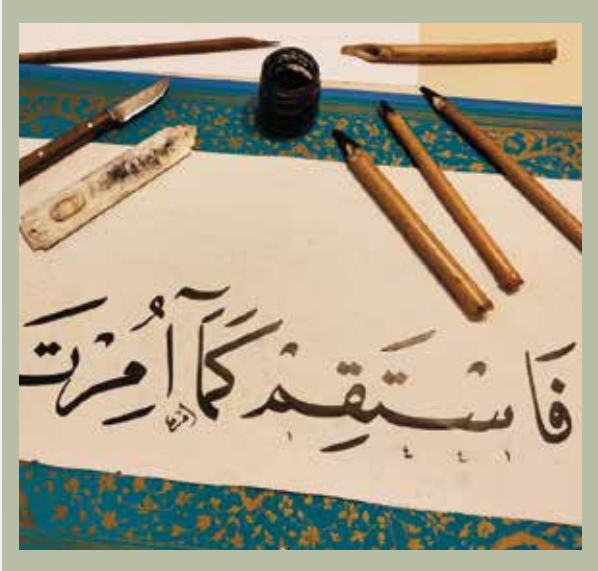 فَاسْتَقِمْ كَمَآ اُمِرْتَ